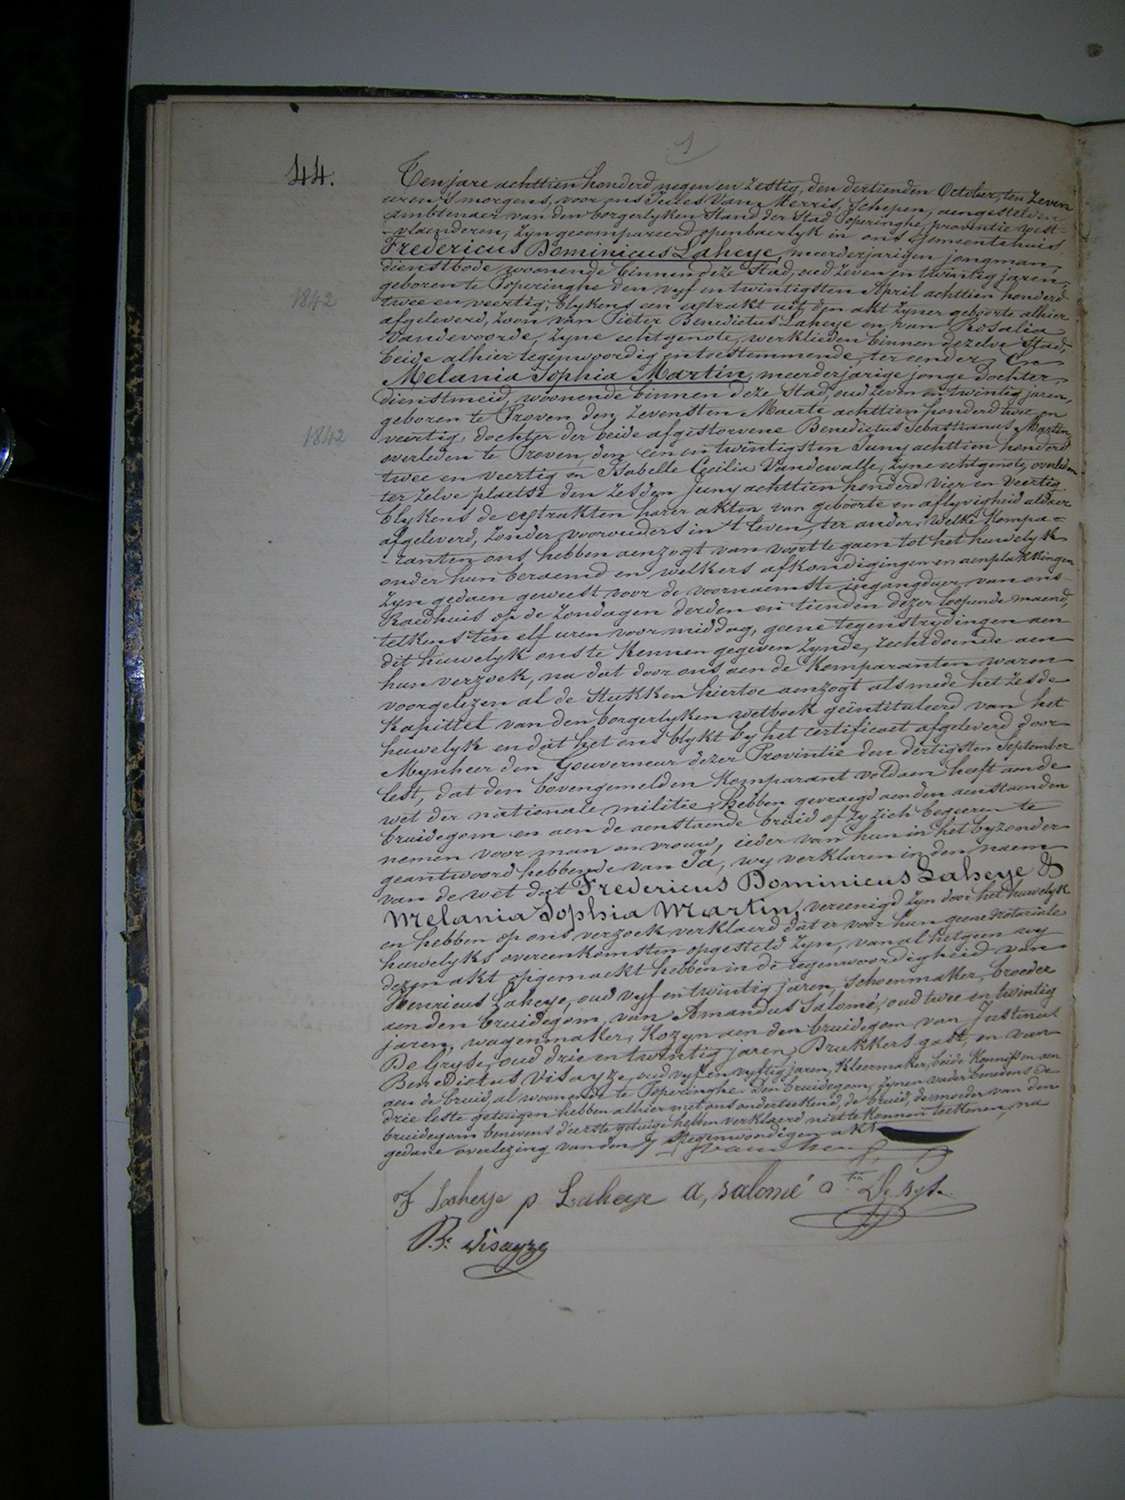 1
44.
Ten jare achttien honderd negen en zestig, den dertienden October, ten zeven
uren 's morgens, voor ons Jules Van Merris, Schepen, aengestelden
Ambtenaer van den borgerlyken Stand der Stad Poperinghe, provintie West-
-vlaenderen, zyn gecompareerd openbaerlyk in ons gemeentehuis
Fredericus Dominicus Laheye, meerderjarigen jongman,
dienstbode, woonende binnen deze Stad, oud zeven en twintig jaren,
geboren te Poperinghe den vyf en twintigsten April achttien honderd
1842
twee en veertig, blykens een extrakt uit den akt zyner geboorte alhier
afgeleverd, zoon van Pieter Benedictus Laheye en van Rosalia
Vandevoorde, zyne echtgenote, werklieden binnen dezelve Stad,
beide alhier tegenwoordig en toestemmende, ter eender, En
Melania Sophia Martin, meerderjarige jonge dochter,
dienstmeid, woonende binnen deze Stad, oud zeven en twintig jaren,
geboren te Proven den zevensten Maerte achttien honderd twee en
1842
veertig, dochter der beide afgestorvene Benedictus Sebastianus Martin,
overleden te Proven, den een en twintigsten Juny achttien honderd
twee en veertig en Isabelle Cecilia Vandewalle, zyne echtgenote, overleden
ter zelve plaetse den zesden Juny achttien honderd vier en veertig
blykens de extrakten harer akten van geboorte en aflyvigheid aldaer
afgeleverd, zonder voorouders in 't leven, ter ander, Welke Kompa-
-ranten ons hebben aenzogt van voort te gaen tot het huwelyk
onder hun beraemd en welkers afkondigingen en aenplakkingen
zyn gedaen geweest voor de voornaemste ingangdeur van ons
Raedhuis op de zondagen derden en tienden dezer loopende maend,
telkens ten elf uren voormiddag, geene tegenstrydingen aen
dit huwelyk ons te kennen gegeven zynde, recht doende aen
hun verzoek, na dat door ons aen de Komparanten waren
voorgelezen al de Stukken hiertoe aenzogt als mede het zesde
Kapittel van den borgerlyken wetboek geintituleerd van het
huwelyk en dat het ons blykt by het certificaet afgeleverd door
Mynheer den Gouverneur dezer Provintie den dertigsten September
lest, dat den bovengemelden Komparant voldaen heeft aen de
wet der nationale militie, hebben gevraegd aen den aenstaenden
bruidegom en aen de aenstaende bruid of zy zich begeeren te
nemen voor man en vrouw, ieder van hun in het byzonder
geantwoord hebbende van Ja, wy verklaren in den naem
van de wet dat Fredericus Dominicus Laheye &
Melania Sophia Martin, vereenigd zyn door het huwelyk
en hebben op ons verzoek verklaerd dat er voor hun geene notariale
huwelyks overeenkomsten opgesteld zyn, van al hetgeen wy
dezen akt opgemaekt hebben in de tegenwoordigheid van
Henricus Laheye, oud vyf en twintig jaren, schoenmaker, broeder
aen den bruidegom, van Amandus Salomé, oud twee en twintig
jaren, wagenmaker, Kozyn aen den bruidegom van Justinus
De Gryse, oud drie en twintig jaren, Brukkers gast, en van
Benedictus Visayze, oud vyf en vyftig jaren, Kleermaker, beide Kennissen aen
aen de bruid, al woonende te Poperinghe. Den bruidegom, zynen vader benevens de
drie leste getuigen hebben alhier met ons onderteekend, de bruid, de moeder van den
bruidegom benevens d'eerste getuige hebben verklaerd niet te konnen teekenen, na
gedane overlezing van den tegenwoordigen akt
F Laheye p Laheye A, Salomé
B. Visayze